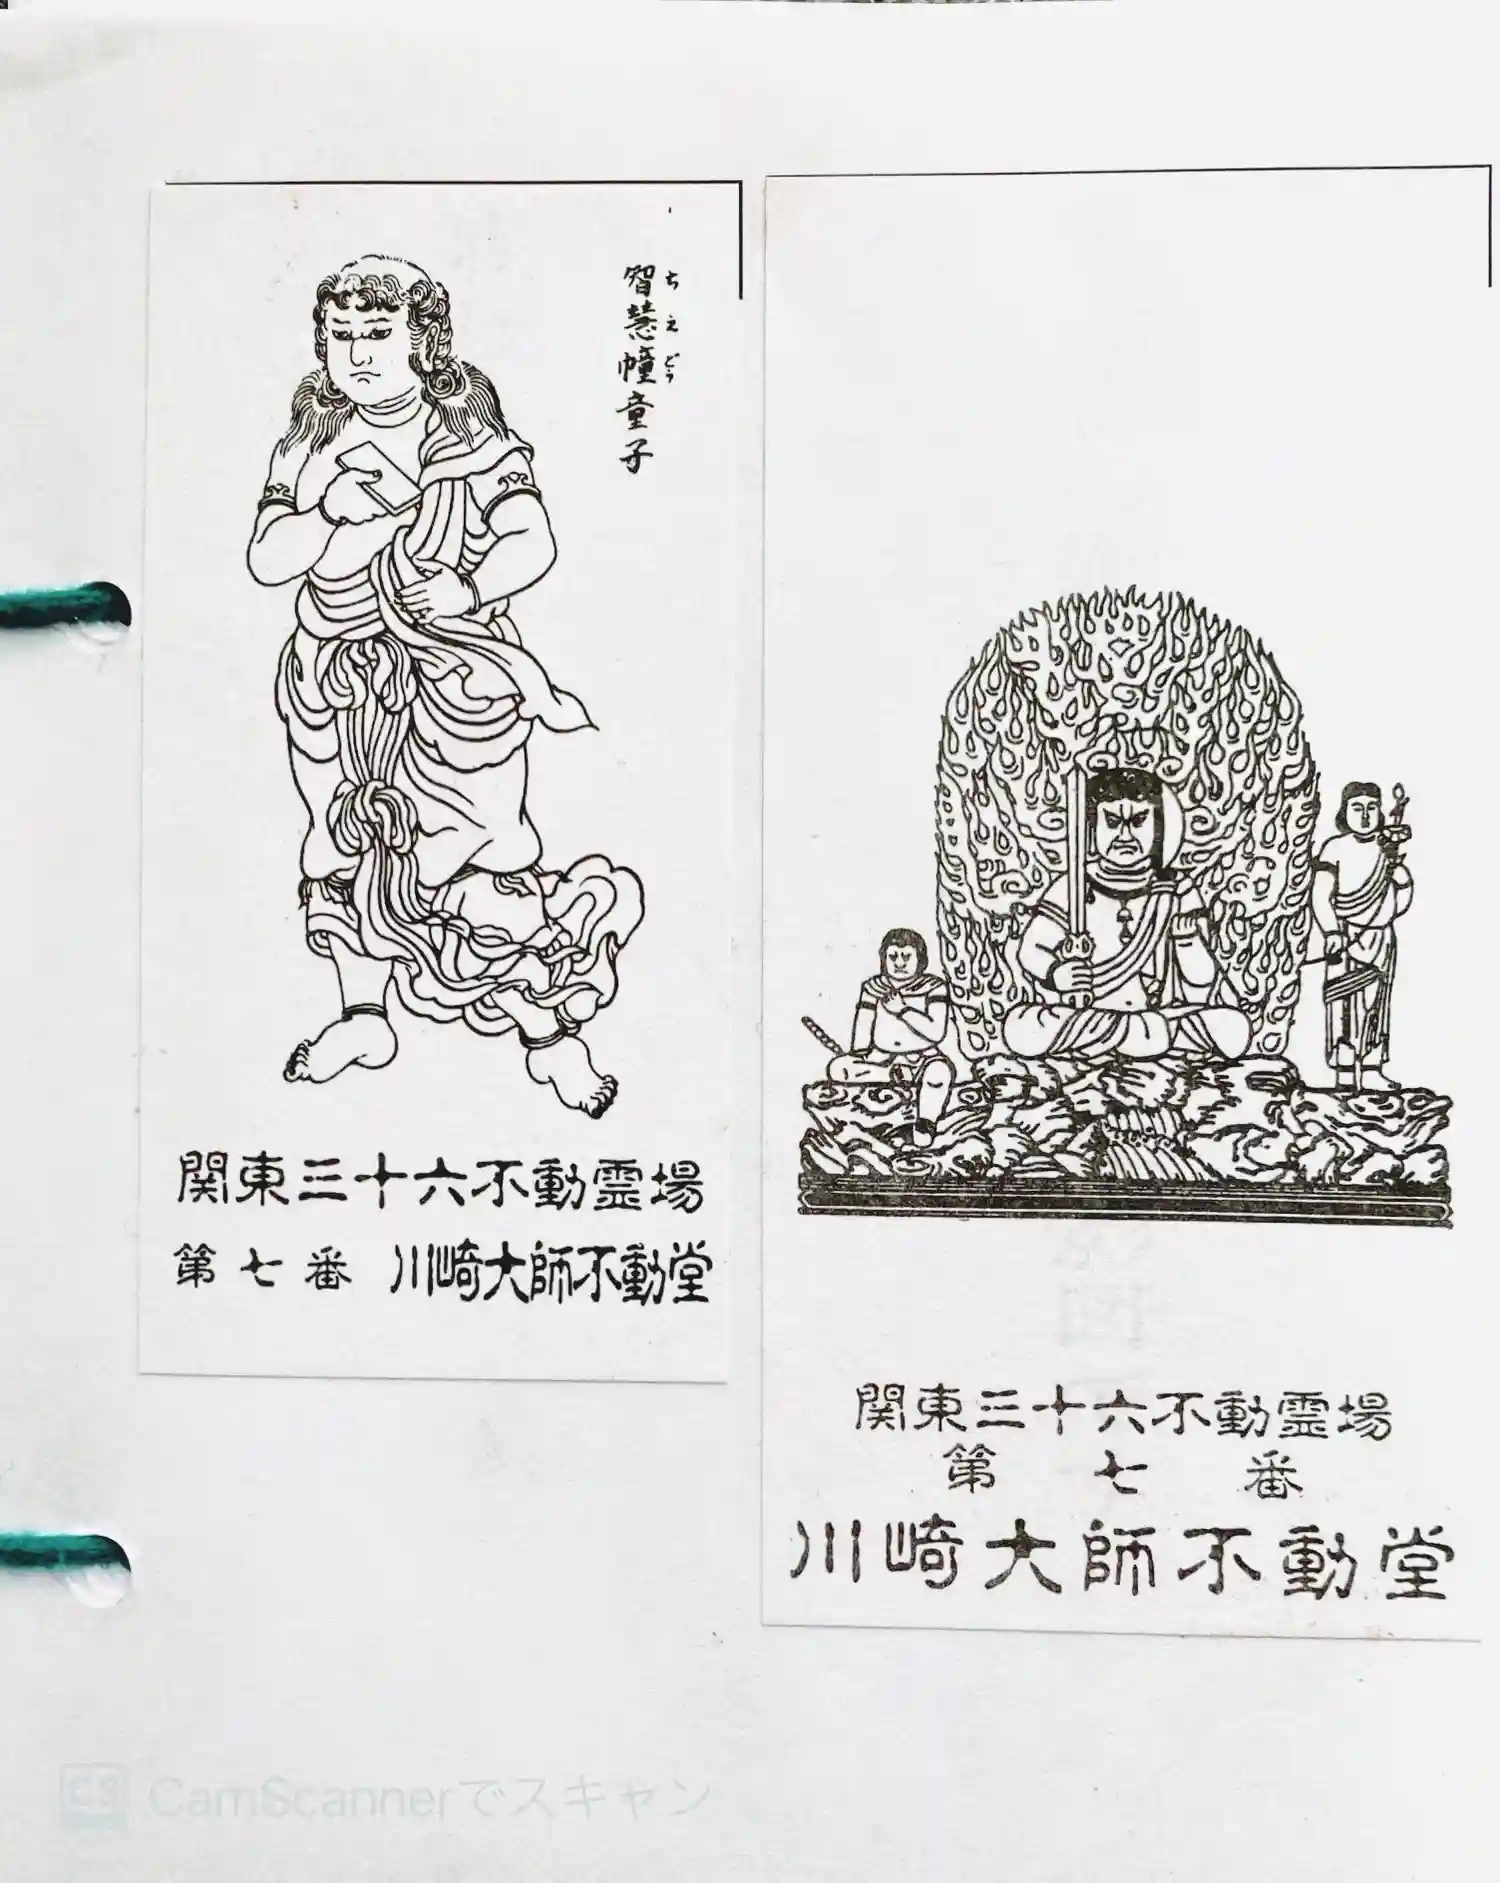 智慧幢童子
ちえどう
関東三十六不動霊場
第七番 川崎大師不動堂
関東三十六不動霊場
第七番
川崎大師不動堂
CS CamScannerでスキャン